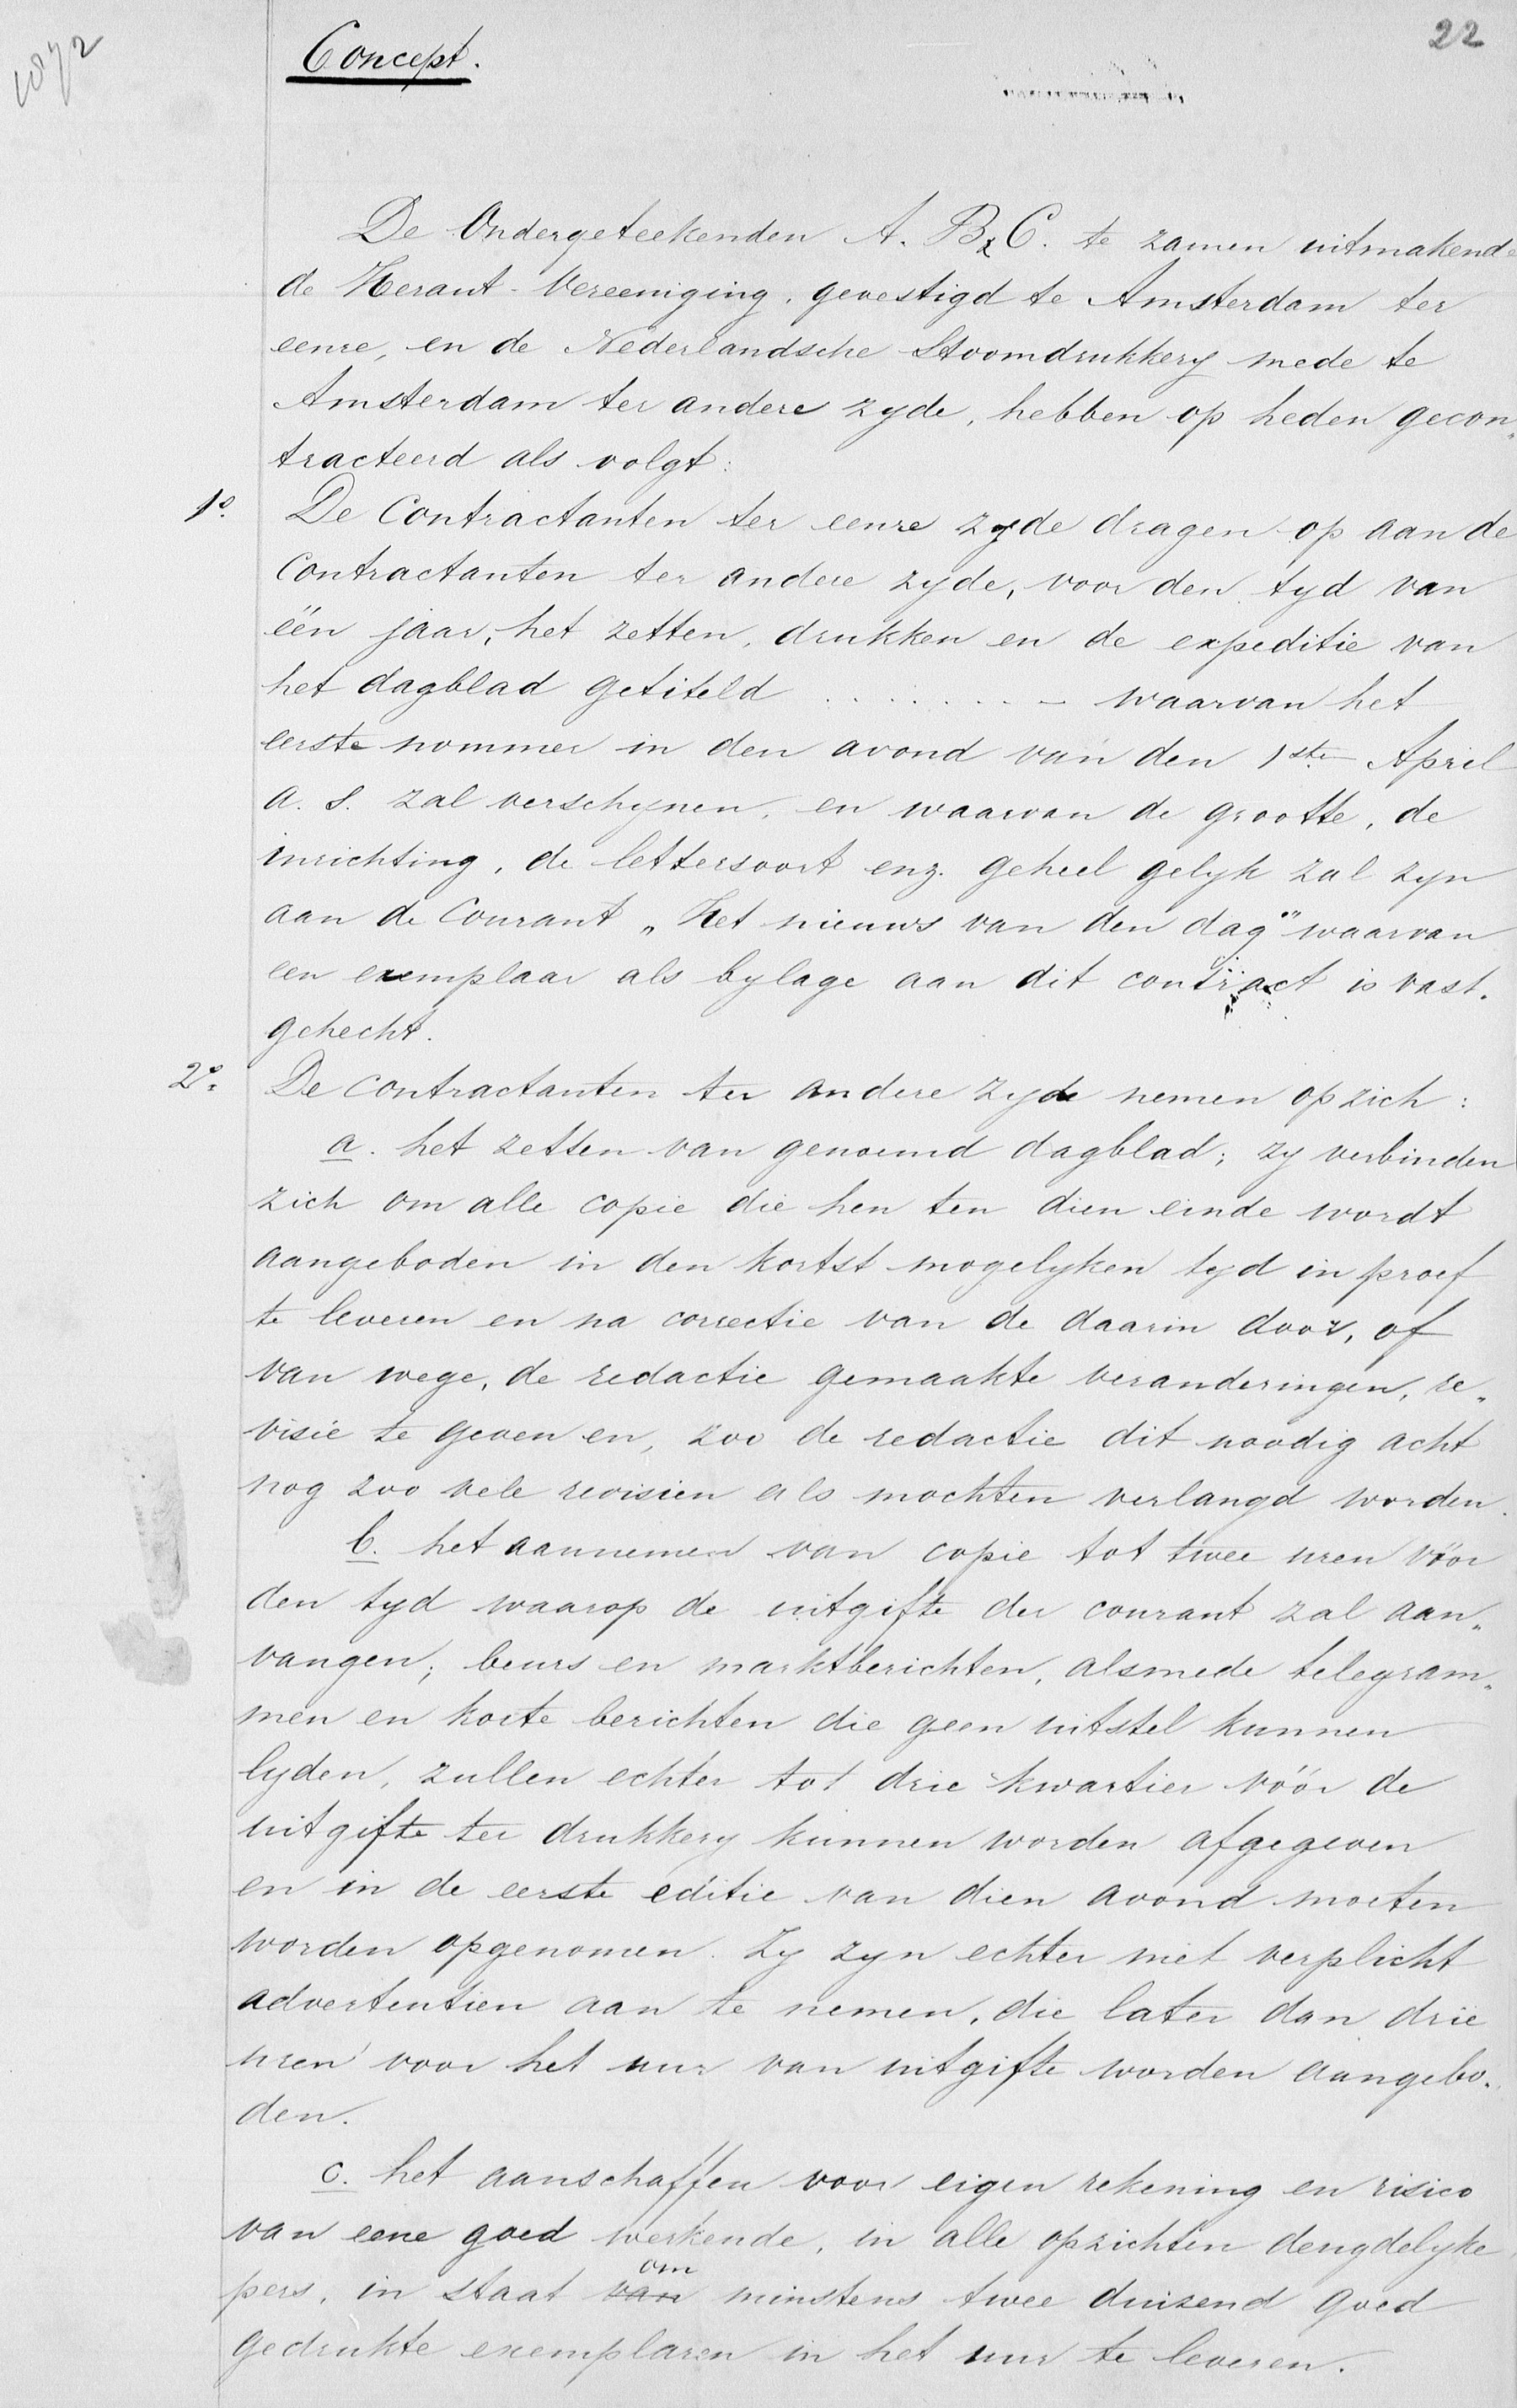 1872
22
Concept.
De Ondergeteekenden A. B & C. te zamen uitmakende
de Heraut-Vereeniging, gevestigd te Amsterdam ter
eenre, en de Nederlandsche Stoomdrukkery mede te
Amsterdam ter andere zyde, hebben op heden gecon„
tracteerd als volgt:
1o. De Contractanten ter eenre zyde dragen op aan de
Contractanten ter andere zyde, voor den tyd van
één jaar, het zetten, drukken en de expeditie van
het dagblad getiteld . . . . . . . – waarvan het
eerste nommer in den avond van den 1ste April
a. s. zal verschynen, en waarvan de grootte, de
inrichting, de lettersoort enz. geheel gelyk zal zyn
aan de Courant „Het nieuws van den dag" waarvan
een exemplaar als bylage aan dit contract is vast.
gehecht.
2o. De contractanten ter andere zyde nemen op zich:
a. het zetten van genoemd dagblad; zy verbinden
zich om alle copie die hen ten dien einde wordt
aangeboden in den kortst mogelyken tyd in proef
te leveren en na correctie van de daarin door, of
van wege, de redactie gemaakte veranderingen, re„
visie te geven en, zoo de redactie dit noodig acht
nog zoo vele revisien als mochten verlangd worden.
b. het aannemen van copie tot twee uren vóór
den tyd waarop de uitgifte der courant zal aan„
vangen; beurs en marktberichten, alsmede telegram„
men en korte berichten die geen uitstel kunnen
lyden, zullen echter tot drie kwartier vóór de
uitgifte ter drukkery kunnen worden afgegeven
en in de eerste editie van dien avond moeten
worden opgenomen. Zy zyn echter niet verplicht
advertentien aan te nemen, die later dan drie
uren voor het uur van uitgifte worden aangebo„
den.
c. het aanschaffen voor eigen rekening en risico
van eene goed werkende, in alle opzichten deugdelyke
pers, in staat van om minstens twee duizend goed
gedrukte exemplaren in het uur te leveren.